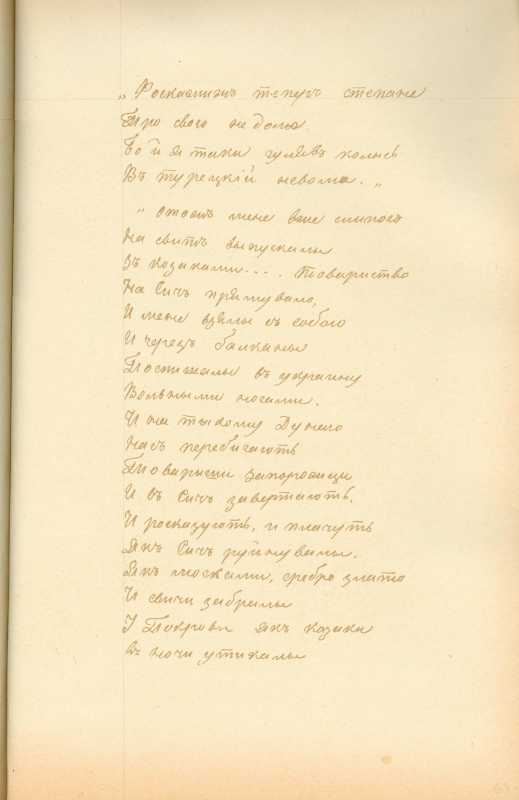 „ Роскажижъ теперъ степане
Про свою недолю.
Бо й я таки гулявъ колысь
Въ турецкій неволи. „
„ Отожъ мене вже слипого
На свитъ выпускалы
Зъ козаками . . . . Товариство
На Сичъ прямувало,
И мене взялы съ собою
И черезъ балканы
Поспишалы въ украину
Вольными ногами.
И на тыхому Дунаю
Насъ перебигають
Товарищи запорожци
И въ Сичъ завертають.
И росказують, и плачуть
Якъ Сичъ руйнувалы.
Якъ москали, сребро злато
И свичи забралы
У Покровы Якъ козаки
въ ночи утикалы